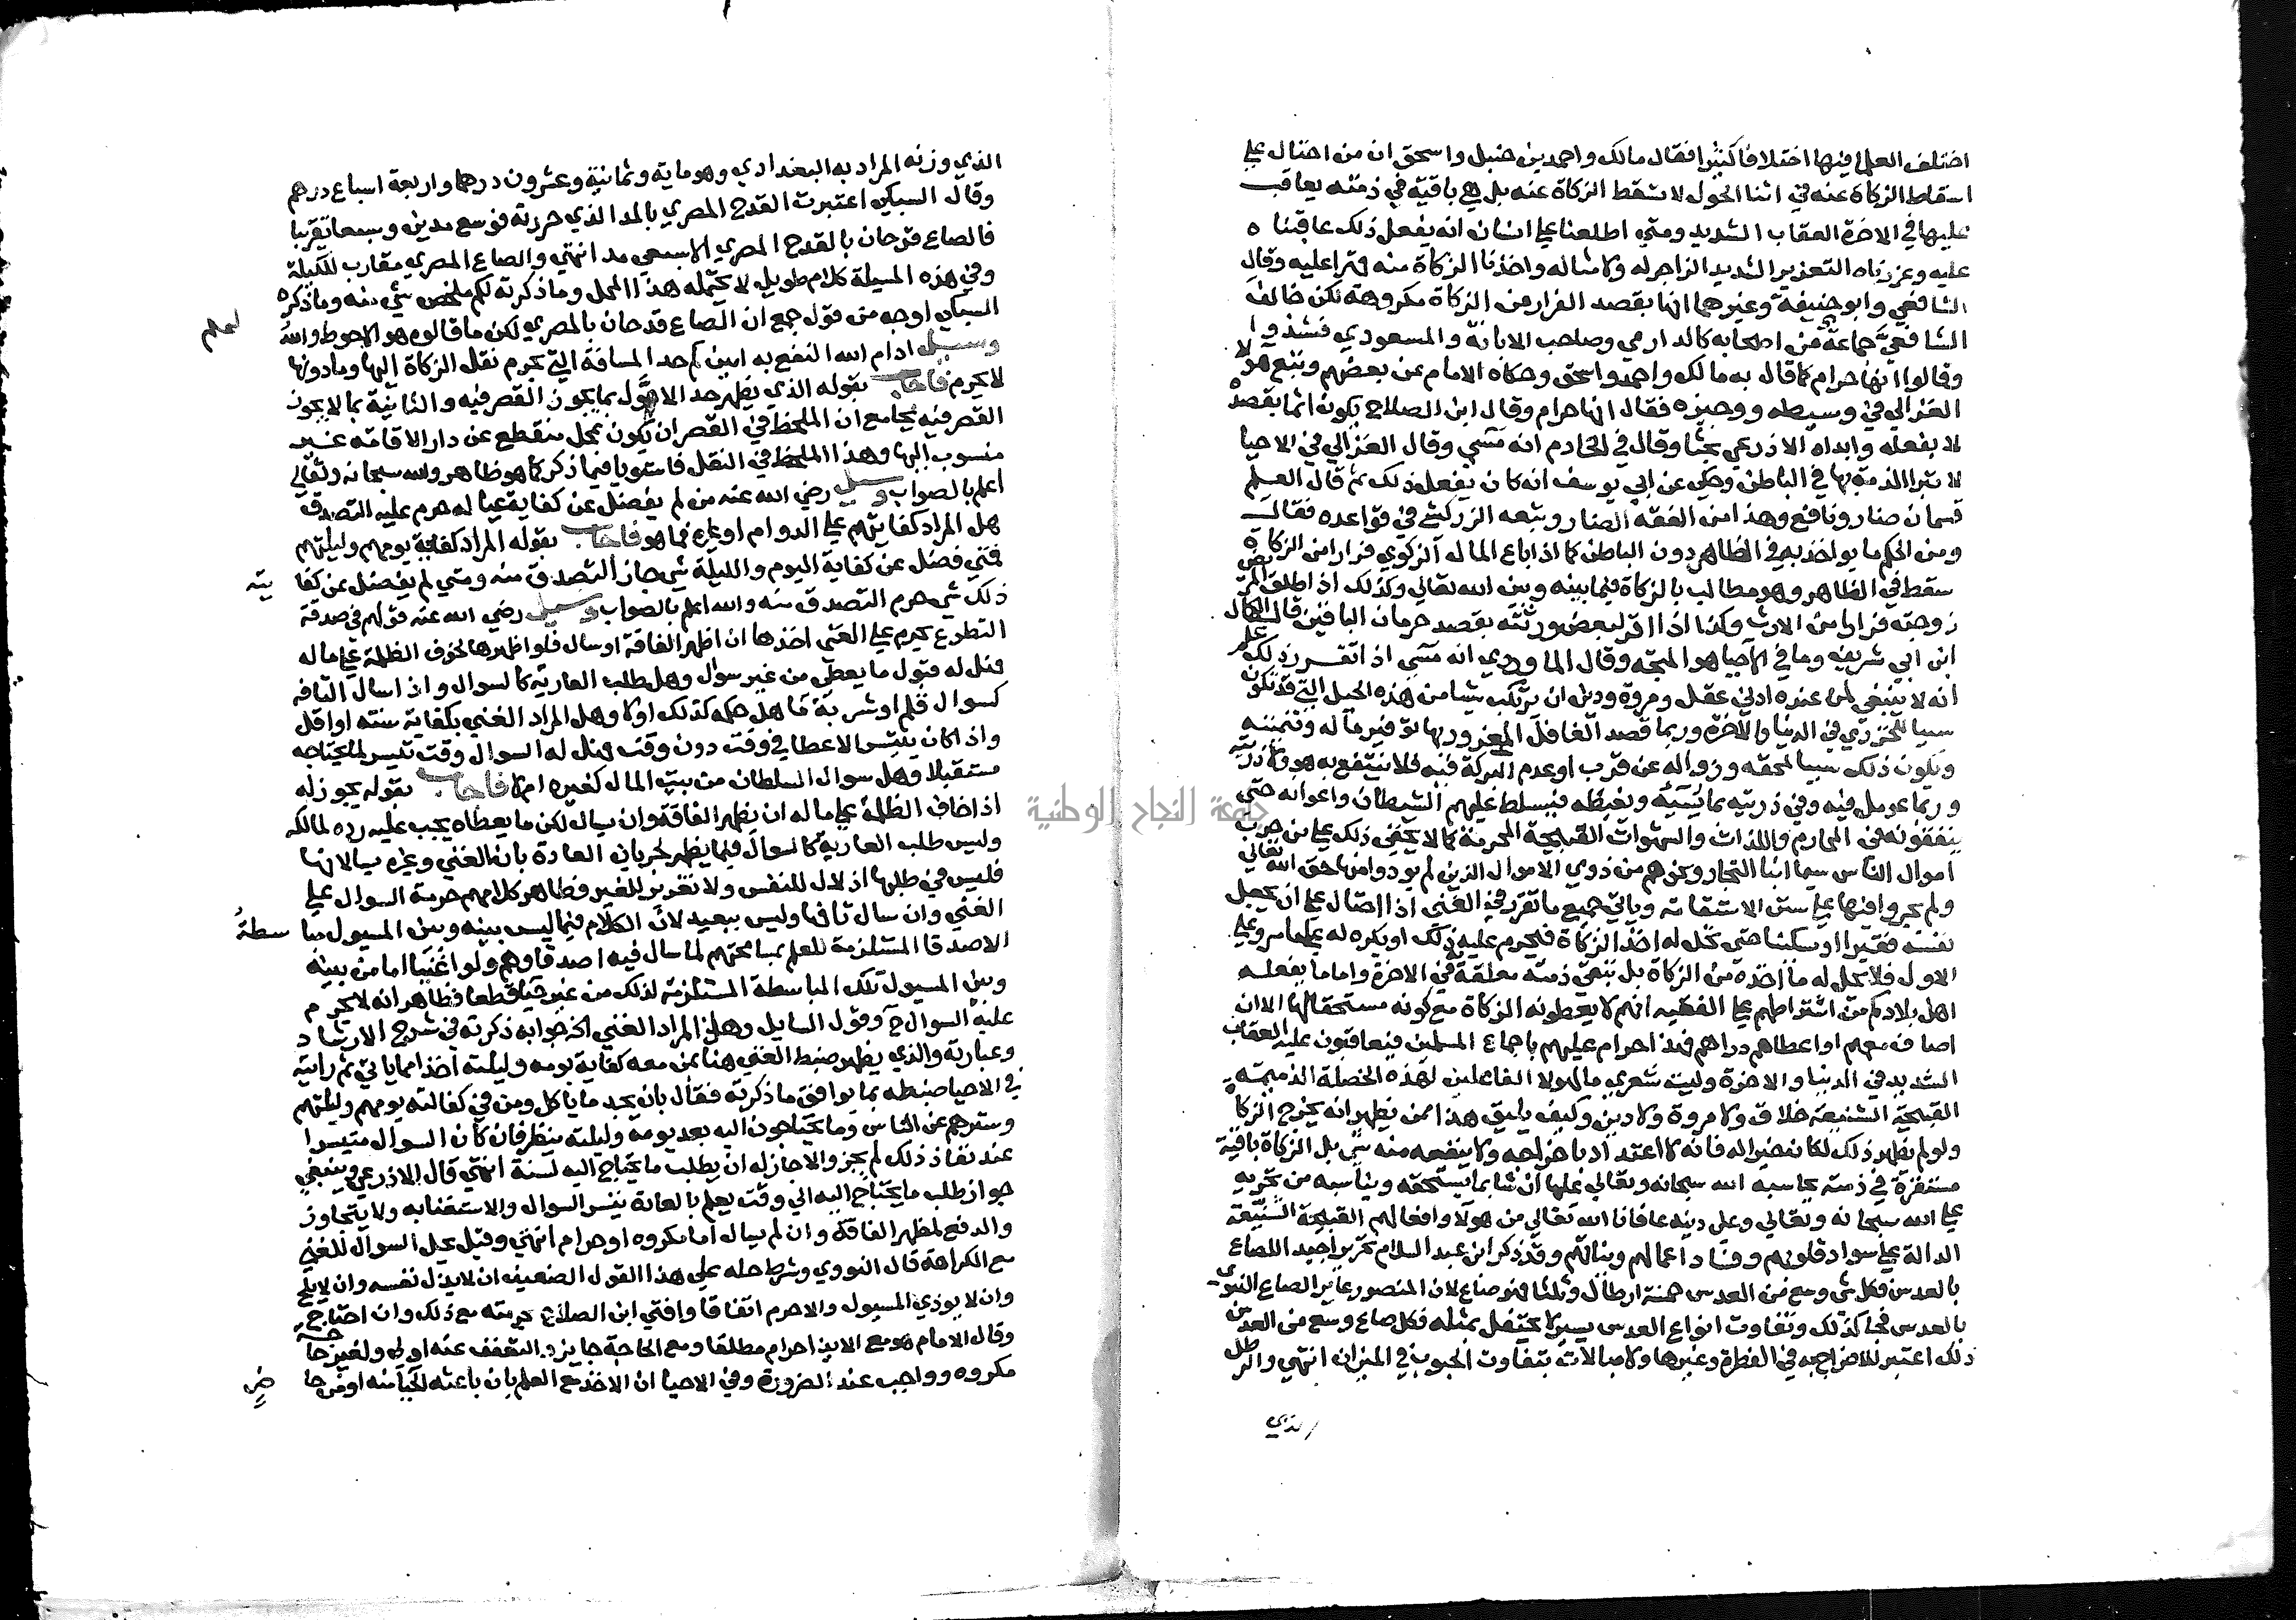 اختلف العلما فيها اختلافا كثيرا فقال مالك واحمد بن حنبل واسحق ان من احتال على
اسقاط الزكاة عنه في اثنا الحول لا تسقط الزكاة عنه بل هي باقية في ذمته يعاقب
عليها في الاخرة العقاب الشديد ومتى اطلعنا على انسان انه يفعل ذلك عاقبناه
عليه وعزرناه التعزير الشديد الزاجر له ولامثاله واخذنا الزكاة منه قهرا عليه وقال
الشافعي وابو حنيفة وغيرهما انها بقصد الفرار من الزكاة مكروهة لكن خالف
الشافعي جماعة من اصحابه كالدارمي وصاحب الابانة والمسعودي فشذوا
وقالوا انها حرام كما قال به مالك واحمد واسحق وحكاه الامام عن بعضهم وتبع هولا
الغزالي في وسيطه ووجيزه فقال انها حرام وقال ابن الصلاح يكون اثما بقصده
لا بفعله وابداه الاذرعي بحثا وقال في الخادم انه متسي وقال الغزالي في الاحيا
لا تبرا الذمة بها في الباطن وحكى عن ابي يوسف انه كان يفعل ذلك ثم قال العلم
قسمان ضار ونافع وهذا من الفقه الضار وتبعه الزركشي في قواعده فقال
ومن الحكم ما يواخذ به في الظاهر دون الباطن كما اذا باع المال الزكوي فرارا من الزكاة
سقط في الظاهر وهو مطالب بالزكاة فيما بينه وبين الله تعالى وكذلك اذا طلق المريض
زوجته فرارا من الارث وكذا اذا اقر لبعض ورثته بقصد حرمان الباقين قال الكمال
ابن ابي شريف وما في الاحيا هو المتجه وقال الماوردي انه مسي اذا تقرر ذلك علم
انه لا ينبغي لمن عنده ادنى عقل ومروة ودين ان يرتكب شيا من هذه الحيل التي قد تكون
سببا للخزي في الدنيا والاخرة وربما قصد الغافل المغرور بها توفير ماله وتنميته
ويكون ذلك سببا لمحقه وزواله عن قرب او عدم البركة فيه فلا ينتفع به هو ولا ذريته
وربما عومل فيه وفي ذريته بما يسيه ويغيظه فيسلط عليهم الشيطان واعوانه حتى
ينفقونه في المحارم واللذات والشهوات القبيحة المحرمة كما لا يخفى ذلك على من جرب
اموال الناس سيما ابنا التجار ونحوهم من ذوي الاموال الذين لم يودوا منها حق الله تعالى
ولم يجروا فيها على سنن الاستقامة وياتي جميع ما تقرر في الغنى اذا احتال على ان يجعل
نفسه فقيرا او مسكينا حتى تحل له اخذ الزكاة فيحرم عليه ذلك او يكره له على ما مر وعلى
الاول فلا يحل له ما اخذه من الزكاة بل تبقى ذمته معلقة به في الاخرة واما ما يفعله
اهل بلادكم من اشتراطهم على الفقيه انهم لا يعطونه الزكاة مع كونه مستحقا لها الا ان
اضاف معهم او اعطاهم دراهم فهذا حرام عليهم باجماع المسلمين فيعاقبون عليه العقاب
الشديد في الدنيا والاخرة وليت شعري ما لهولا الفاعلين لهذه الخصلة الذميمة
القبيحة الشنيعة خلاق ولا مروة ولا دين وكيف يليق هذا بمن يظهر انه يخرج الزكاة
ولو لم يظهر ذلك لكان خيرا له فانه لا اعتداد باخراجه ولا ينفعه منه شي بل الزكاة باقية
مستقرة في ذمته يحاسبه الله سبحانه وتعالى عليها ان شا بما يستحقه ويناسبه من تجريه
على الله سبحانه وتعالى وعلى دينه عافانا الله تعالى من هولا وافعالهم القبيحة الشنيعة
الدالة على سواد قلوبهم وفساد اعمالهم ونياتهم وقد ذكر ابن عبد السلام تحريرا جيدا للصاع
بالعدس فكل شي وسع من العدس خمسة ارطال وثلثا فهو صاع لان المنصور عاير الصاع النبوي
بالعدس فجا كذلك وتفاوت انواع العدس يسير لا يحتفل بمثله فكل صاع وسع من العدس
ذلك اعتبر للاخراج به في الفطرة وغيرها ولا مبالات بتفاوت الحبوب في الميزان انتهى والرطل
الذي
الذي وزنه المراد به البغدادي وهو ماية وثمانية وعشرون درهما واربعة اسباع درهم
وقال السبكي اعتبرت القدح المصري بالمد الذي حررته فوسع مدين وسبعا تقريبا
فالصاع قدحان بالقدح المصري الا سبعي مد انتهى والصاع المصري مقارب للكيلة
وفي هذه المسيلة كلام طويل لا يحتمله هذا المحل وما ذكرته لكم ملخص شي منه وما ذكره
السبكي اوجه من قول جمع ان الصاع قدحان بالمصري لكن ما قالوه هو الاحوط والله اعلم
وسيل ادام الله النفع به اين حد المسافة التي يحرم نقل الزكاة اليها وما دونها
لا يحرم فاجاب بقوله الذي يظهر حد الاول بما يجوز القصر فيه والثانية بما لا يجوز
القصر فيه بجامع ان الملحظ في القصر ان يكون بمحل منقطع عن دار الاقامة غير
منسوب اليها وهذا الملحظ في النقل فاستويا فيما ذكر كما هو ظاهر والله سبحانه وتعالى
اعلم بالصواب وسيل رضي الله عنه من لم يفضل عن كفاية عياله حرم عليه التصدق
هل المراد كفايتهم على الدوام او غيره فما هو فاجاب بقوله المراد كفاية يومهم وليلتهم
فمتى فضل عن كفاية اليوم والليلة شي جاز التصدق منه ومتى لم يفضل عن كفاية
ذلك شي حرم التصدق منه والله اعلم بالصواب وسيل رضي الله عنه قولهم في صدقة
التطوع يحرم على الغني اخذها ان اظهر الفاقة او سال فلو اظهرها لخوف الظلمة على ماله
فهل له قبول ما يعطى من غير سوال وهل طلب العارية كالسوال واذا سال التافه
كسوال قلم او شربة ما هل حكمه كذلك او لا وهل المراد الغني بكفاية سنته او اقل
واذا كان يتيسر الاعطا في وقت دون وقت فهل له السوال وقت تيسر لما يحتاجه
مستقبلا وهل سوال السلطان من بيت المال كغيره ام لا فاجاب بقوله يجوز له
اذا خاف الظلمة على ماله ان يظهر الفاقة وان سال لكن ما يعطاه يجب عليه رده لمالكه
وليس طلب العارية كالسوال فيما يظهر لجريان العادة بان الغني وغيره يسالانها
فليس في طلبها اذلال للنفس ولا تغرير للغير فظاهر كلامهم حرمة السوال على
الغني وان سال تافها وليس ببعيد لان الكلام فيما ليس بينه وبين المسيول مباسطة
الاصدقا المستلزمة للعلم بمسامحتهم لما سال فيه اصدقاوهم ولو اغنيا اما من بينه
وبين المسيول تلك المباسطة المستلزمة لذلك من غير حيا قطعا فظاهر انه لا يحرم
عليه السوال ح وقول السايل وهل المراد الغني الخ جوابه ذكرته في شرح الارشاد
وعبارته والذي يظهر ضبط الغني هنا بمن معه كفاية يومه وليلته اخذا مما ياتي ثم رايته
في الاحيا ضبطه بما يوافق ما ذكرته فقال بان يجد ما ياكل ومن في كفالته يومهم وليلتهم
وسترهم عن الناس وما يحتاجون اليه بعد يومه وليلته ينظر فان كان السوال متيسرا
عند نفاذ ذلك لم يجز والا جاز له ان يطلب ما يحتاج اليه لسنة انتهى قال الاذرعي وينبغي
جواز طلب ما يحتاج اليه الى وقت يعلم بالعادة تيسر السوال والاستغنا به ولا يتجاوز
والدفع لمظهر الفاقة وان لم يسال اما مكروه او حرام انتهى وقيل يحل السوال للغني
مع الكراهة قال النووي وشرط حله على هذا القول الضعيف ان لا يذل نفسه وان لا يلح
وان لا يوذي المسيول والا حرم اتفاقا وافتى ابن الصلاح بحرمته مع ذلك وان احتاج
وقال الامام هو مع الايذا حرام مطلقا ومع الحاجة جايز والتعفف عنه اولى ولغير حاجة
مكروه وواجب عند الضرورة وفي الاحيا ان الاخذ مع العلم بان باعثه الحيا منه او من حاضر
جامعة النجاح الوطنية